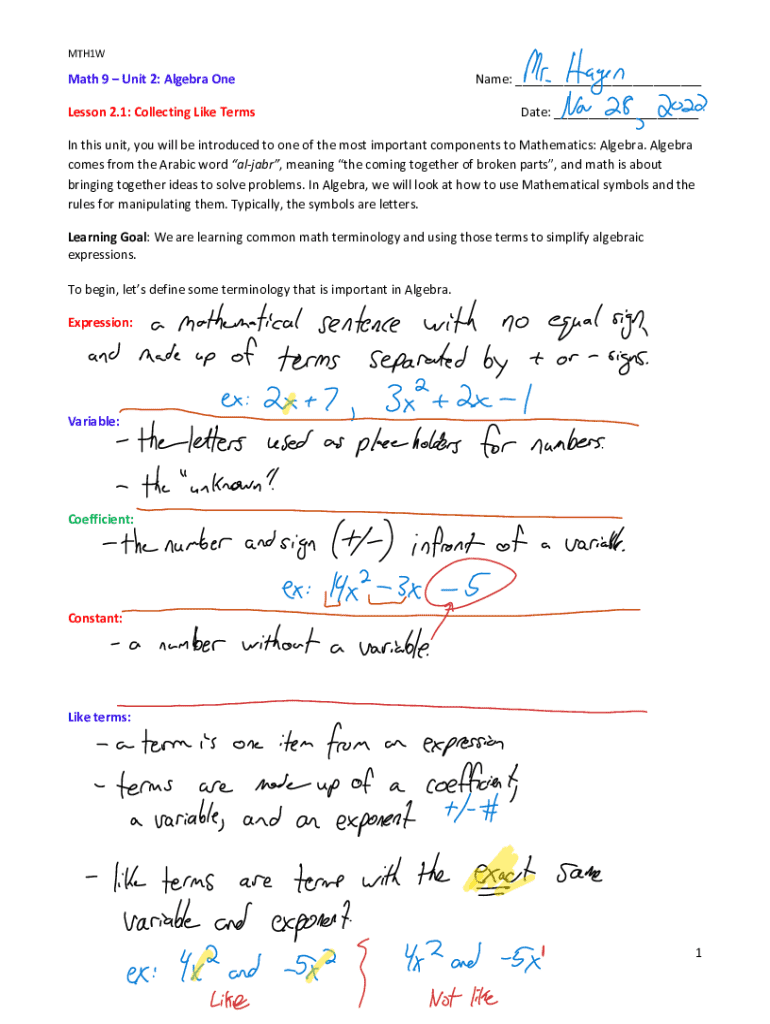 MTH1W
Math 9 – Unit 2: Algebra One Name: Mr. Hagen
Lesson 2.1: Collecting Like Terms Date: Nov 28, 2022
In this unit, you will be introduced to one of the most important components to Mathematics: Algebra. Algebra
comes from the Arabic word “al-jabr”, meaning “the coming together of broken parts”, and math is about
bringing together ideas to solve problems. In Algebra, we will look at how to use Mathematical symbols and the
rules for manipulating them. Typically, the symbols are letters.
Learning Goal: We are learning common math terminology and using those terms to simplify algebraic
expressions.
To begin, let’s define some terminology that is important in Algebra.
Expression: a mathematical sentence with no equal sign,
and made up of terms separated by + or - signs.
ex: 2x+7, 3x²+2x-1
Variable:
- the letters used as placeholders for numbers.
- the "unknown".
Coefficient:
- the number and sign (+/-) infront of a variable.
ex: 14x²-3x-5
Constant:
- a number without a variable.
Like terms:
- a term is one item from an expression
- terms are made up of a coefficient,
a variable, and an exponent +/- #
- like terms are terms with the exact same
variable and exponent.
ex: 4x² and -5x² 4x² and -5x¹
Like Not like
1